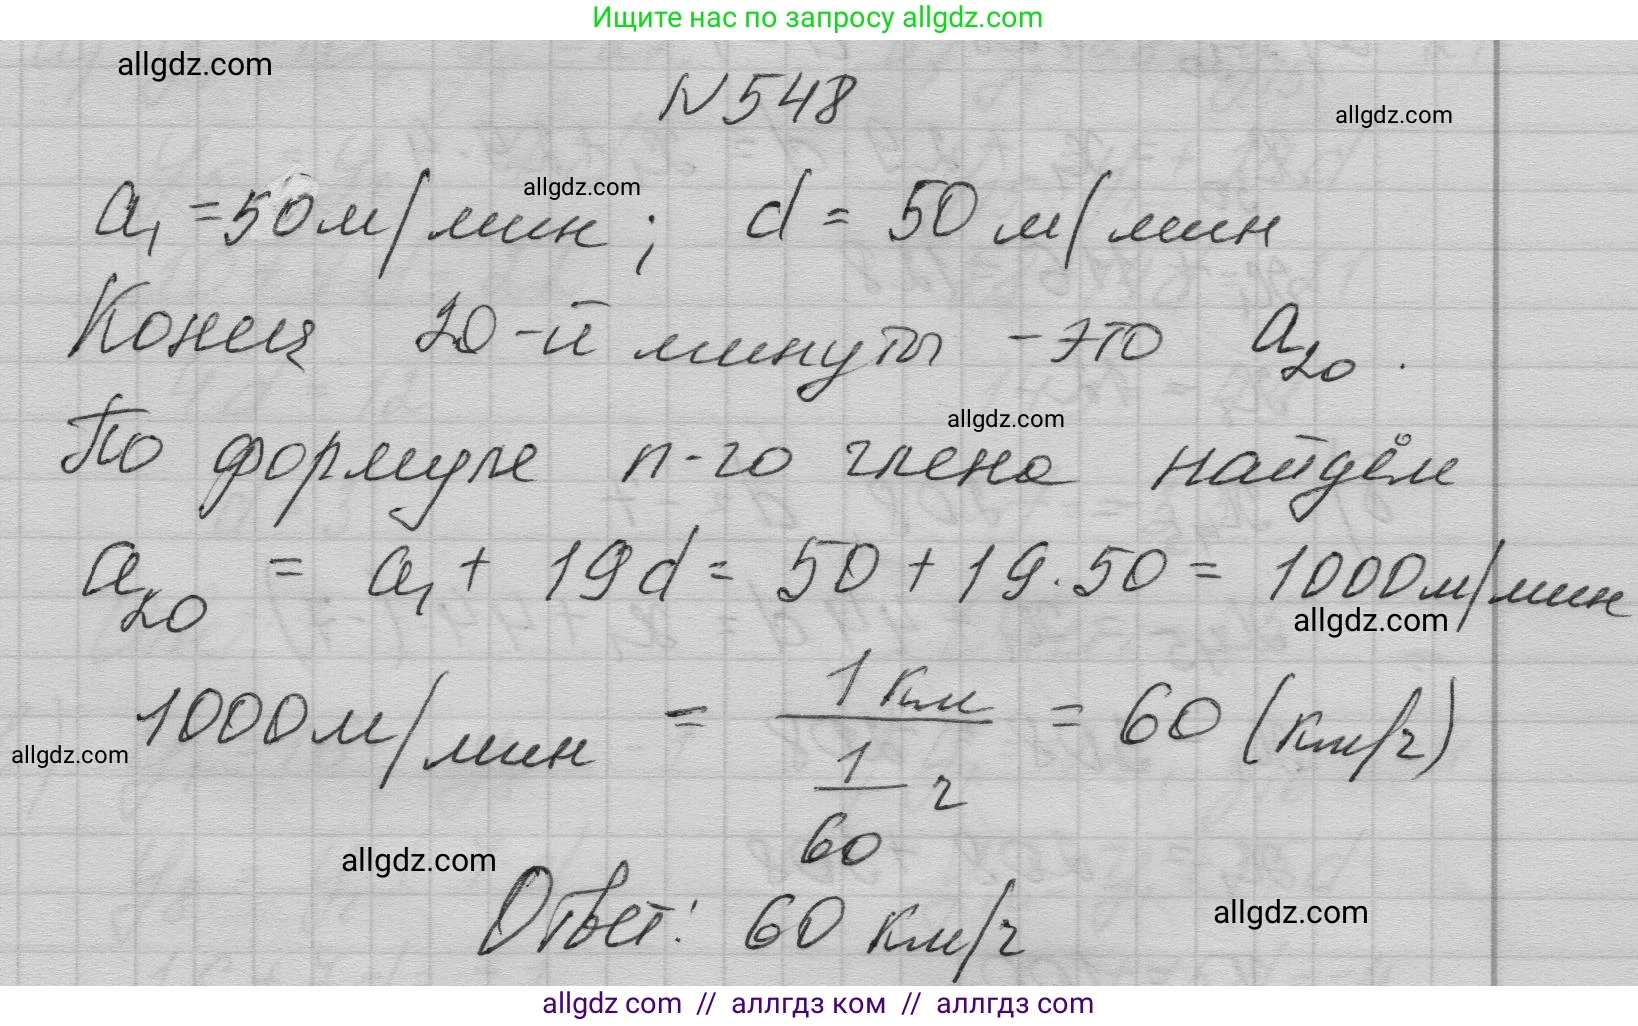 Ищите нас по запросу allgdz.com
allgdz.com
N 548
allgdz.com
allgdz.com
a₁ = 50 м/мин; d = 50 м/мин
Конец 20-й минуты - это a₂₀.
allgdz.com
По формуле n-го члена найдём
a₂₀ = a₁ + 19d = 50 + 19·50 = 1000 м/мин
allgdz.com
1000 м/мин = 1 км / (1/60 ч) = 60 (км/ч)
allgdz.com
allgdz.com
Ответ: 60 км/ч
allgdz.com
allgdz com // аллгдз ком // аллгдз com